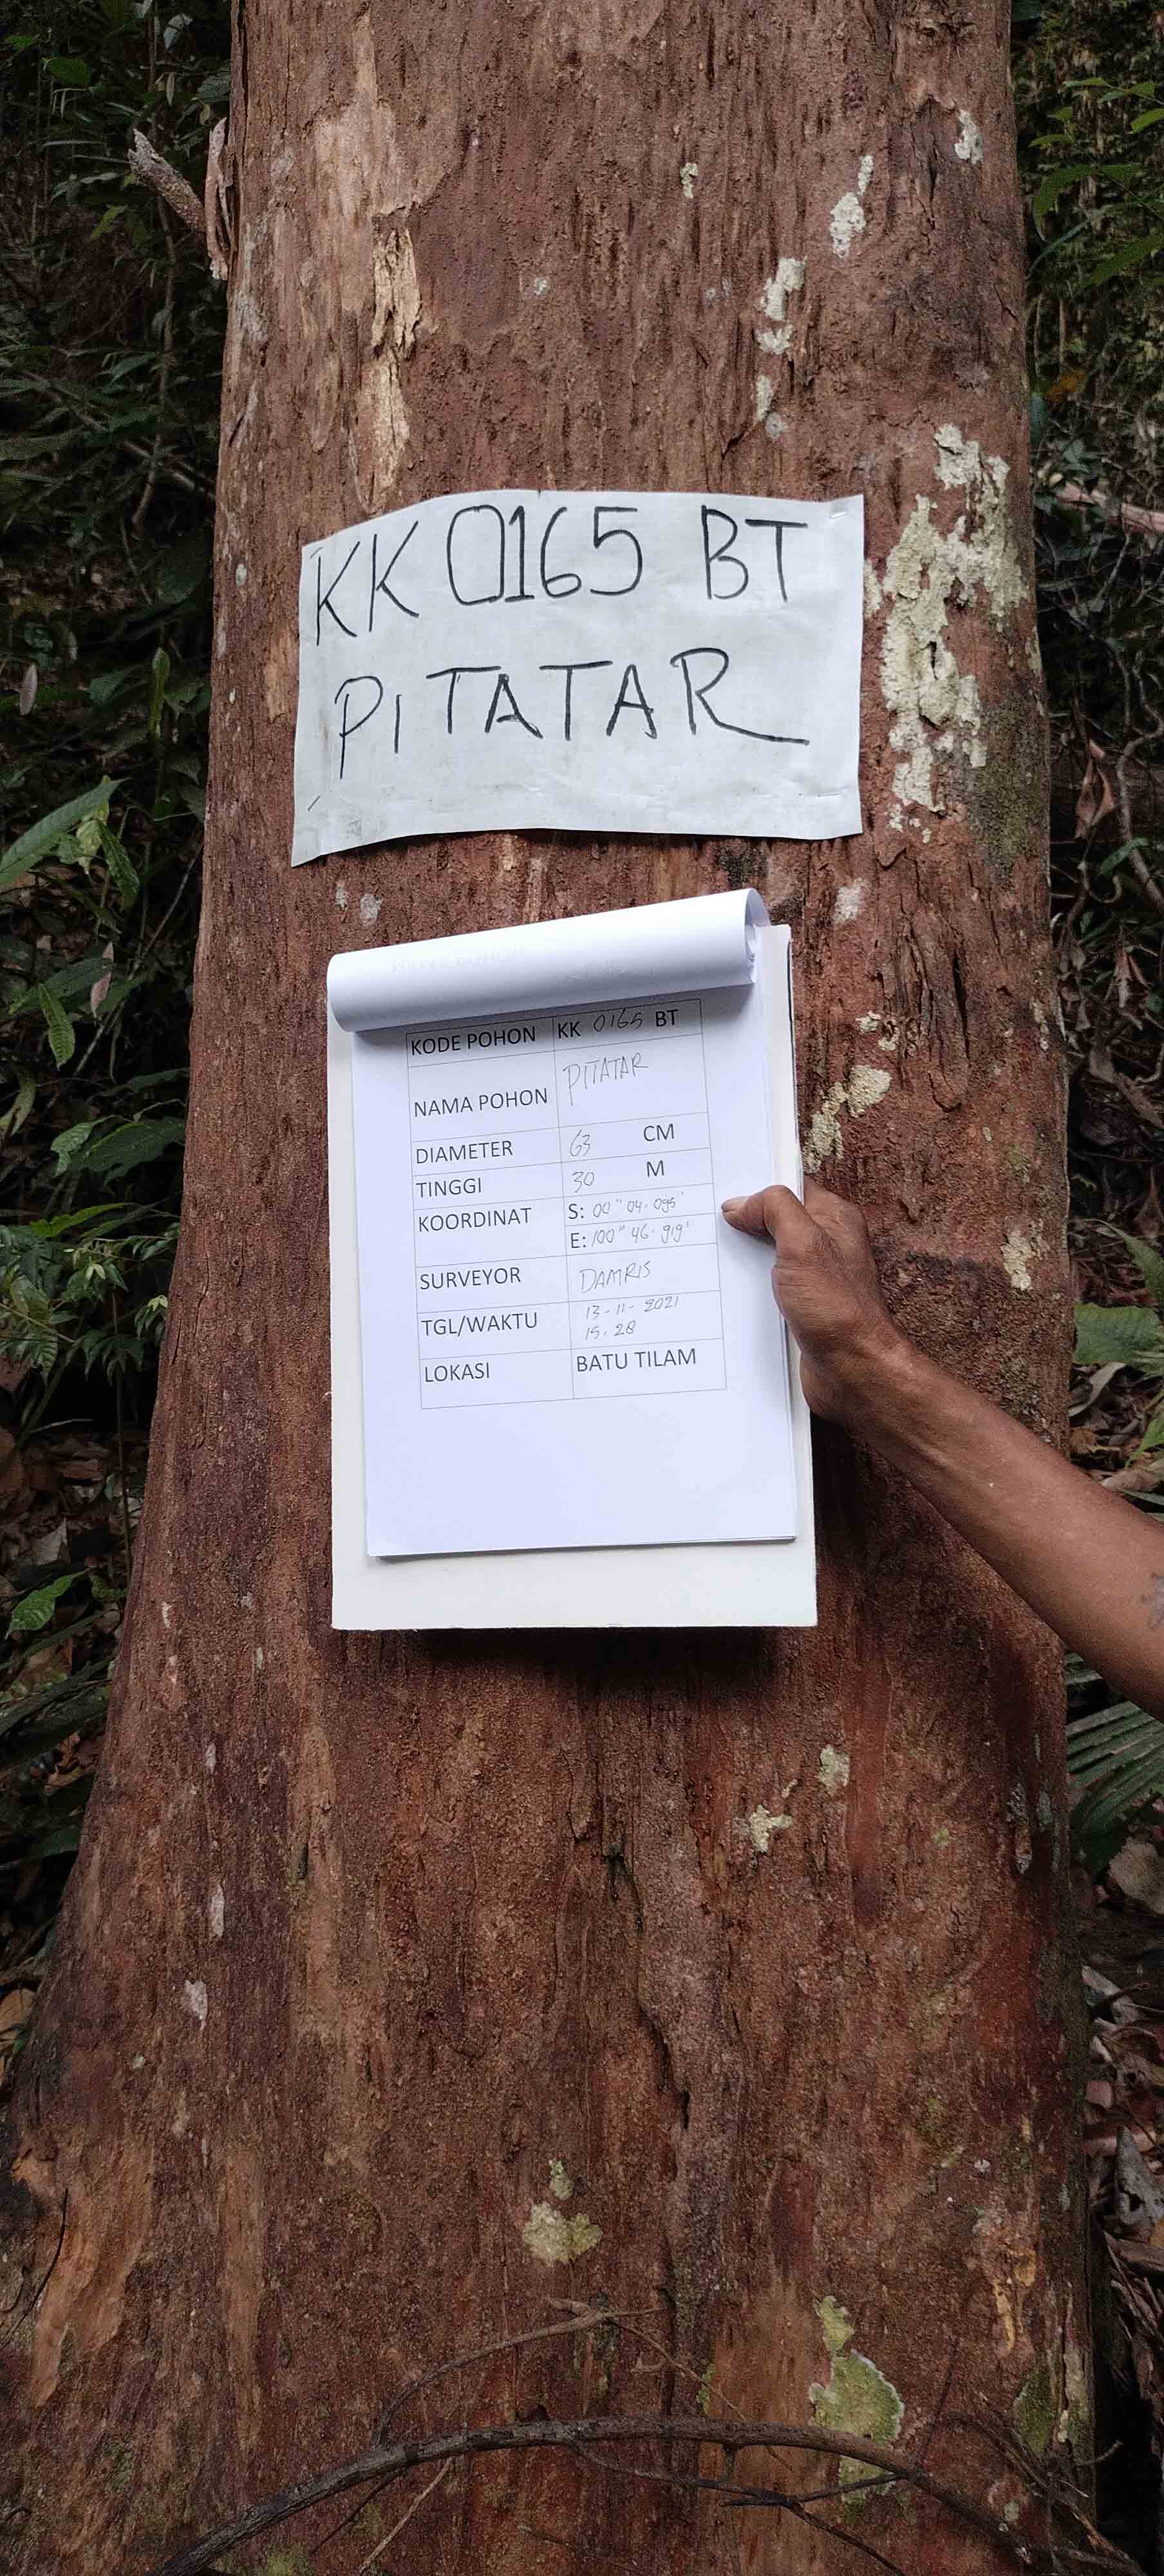 KK 0165 BT
PITATAR
KODE POHON KK 0165 BT
NAMA POHON PITATAR
DIAMETER 63 CM
TINGGI 30 M
KOORDINAT S: 00" 04. 095'
E: 100" 46. 919'
SURVEYOR DAMRIS
TGL/WAKTU 13-11-2021
15.28
LOKASI BATU TILAM